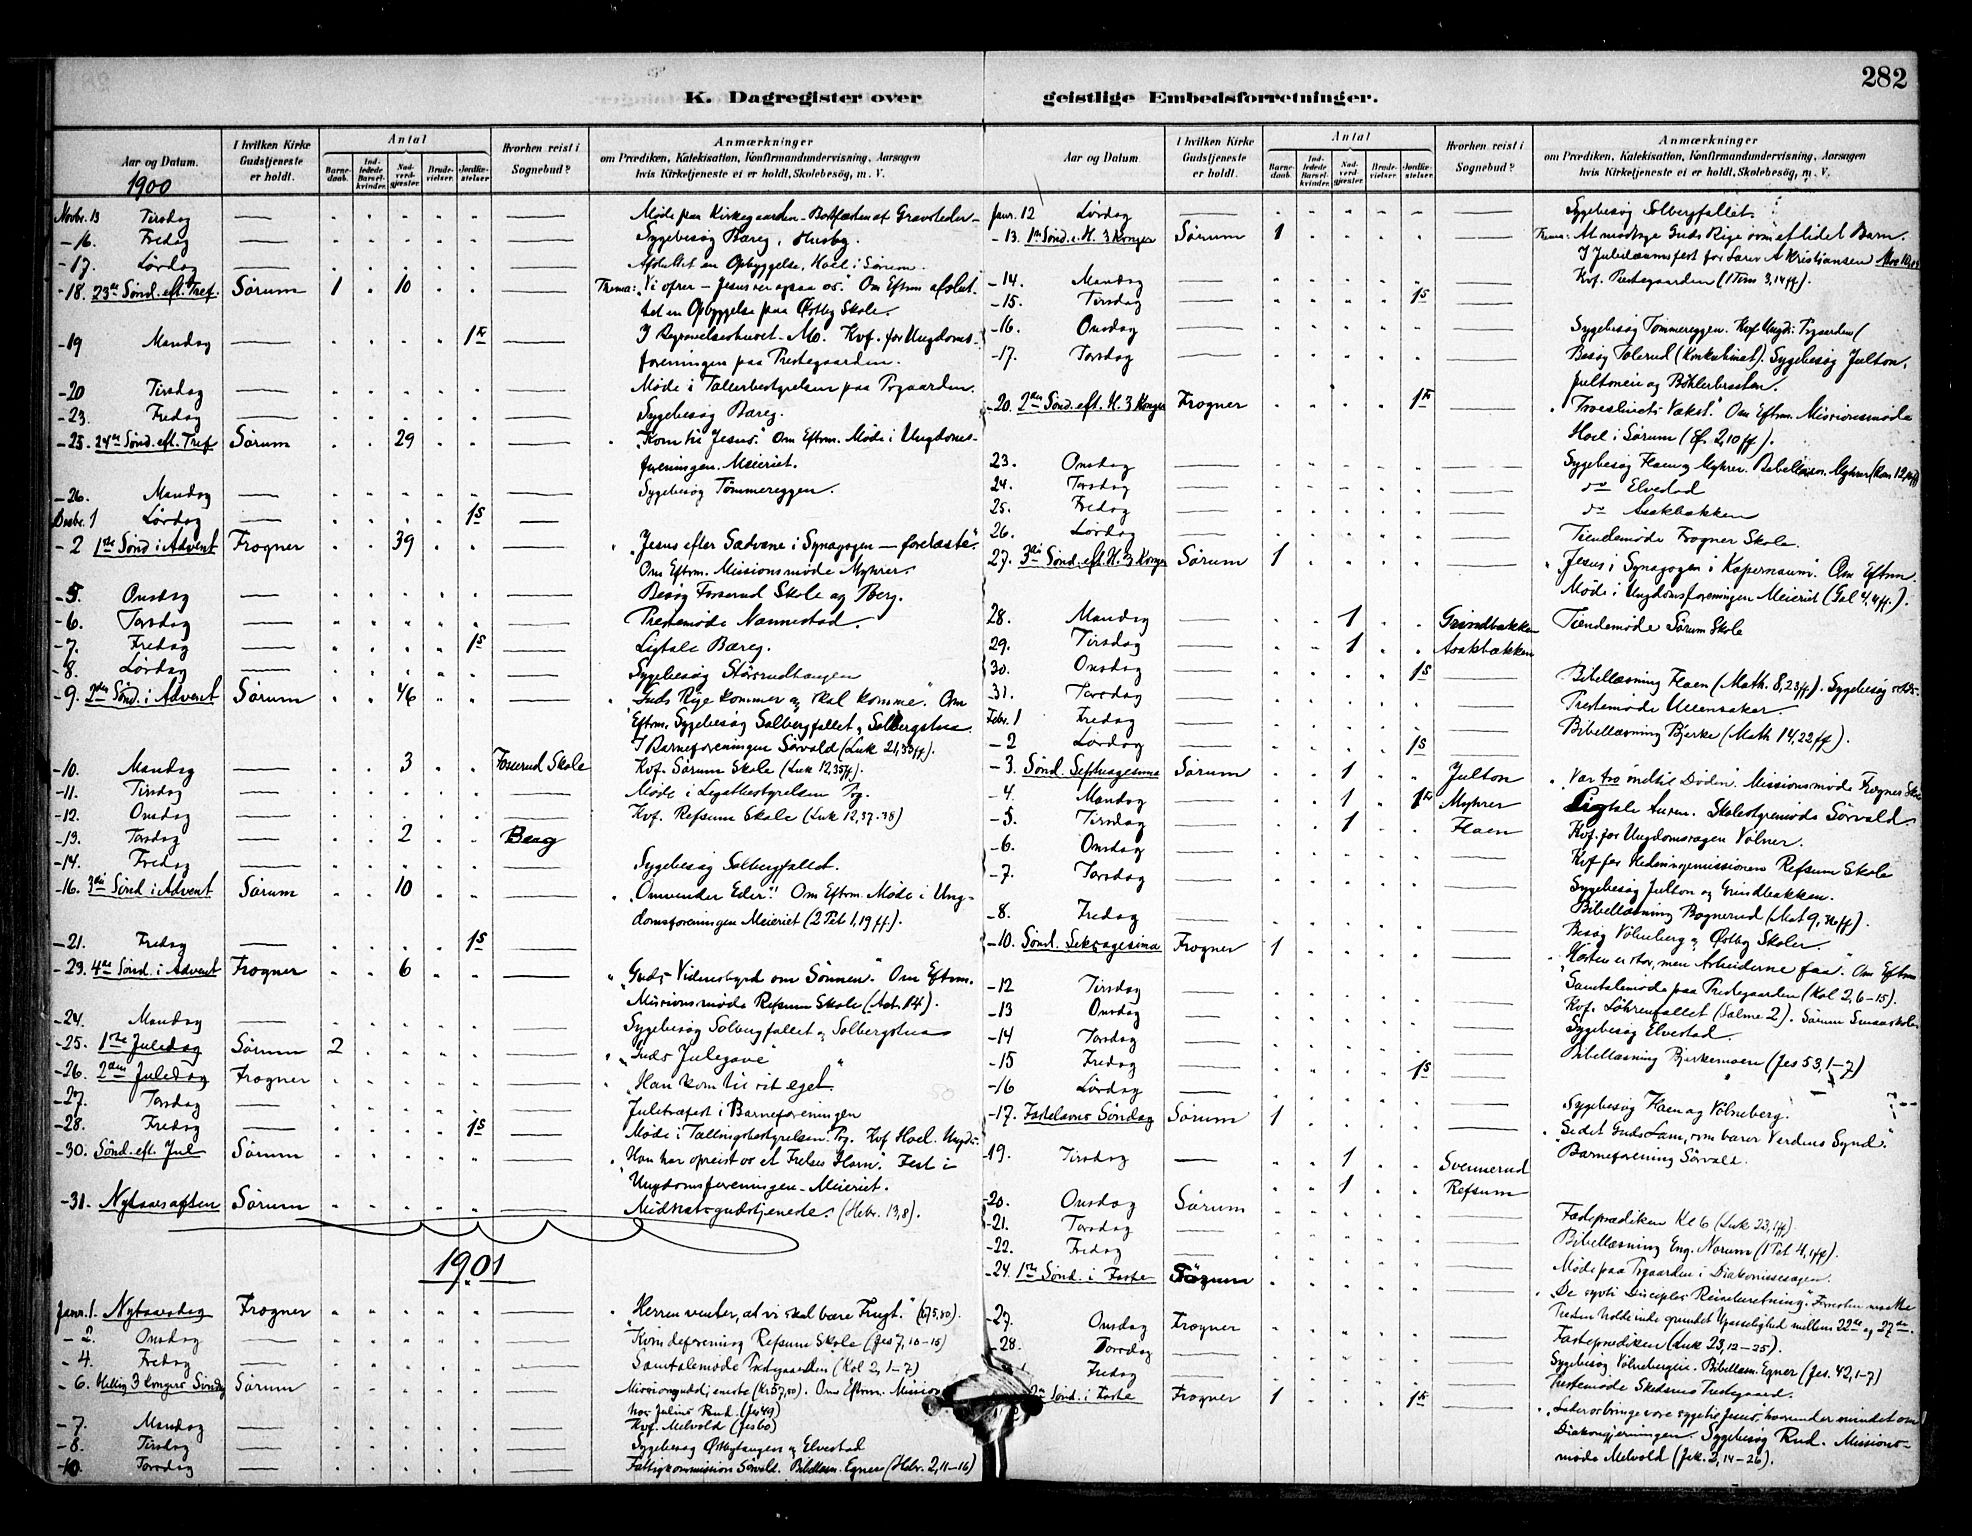 282
K. Dagregister over
geistlige Embedsforretninger.
Aar og Datum.
I hvilken Kirke Gudstjeneste er holdt.
Antal
Barnedaab.
Indledede Barselkvinder.
Nadverdgjester.
Brudevielser.
Jordfæstelser.
Hvorhen reist i Sognebud?
Anmærkninger
om Prædiken, Katekisation, Konfirmandundervisning, Aarsagen
hvis Kirketjeneste ei er holdt, Skolebesøg, m. V.
1900
Novbr. 13 Tirsdag Møde paa Kirkegaarden - Bortfæsten af Gravsteder -
-16. Fredag Sygebesøg Bareg, Husby.
-17. Lørdag Afsluttet en Opbyggelse, Hoel i Sørum.
-18. 23de Sønd. eft. Tref. Sørum 1 10 Thema: "Vi ofrer - Jesus ver ogsaa os." Om Eftm. afslut-
tet en Opbyggelse paa Østby Skole.
-19 Mandag 1K I Bgravelseshuset - Mo. Kvf. for Ungdoms-
foreningen paa Prestegaarden.
-20 Tirsdag Møde i Tællerbestyrelsen paa Prgaarden.
-23. Fredag Sygebesøg Bareg.
-25. 24de Sønd. eft. Tref Sørum 29 "Kom til Jesus." Om Eftrm. Møde i Ungdoms-
foreningen. Meieriet.
-26. Mandag Sygebesøg Tømmereggen.
Decbr. 1 Lørdag 1S
- 2 1ste Sønd i Advent Frogner 39 "Jesus efter Sædvane i Synagogen — forelæste".
Om Eftrm. Missionsmøde Myhrer.
-5. Onsdag Besøg Fosserud Skole og Berg.
-6. Torsdag Prestemøde Nannestad.
-7. Fredag 1S Ligtale Bareg.
-8. Lørdag Sygebesøg Størsrudhaugen
-9. 2den Sønd. i Advent Sørum 46 "Guds Rige kommer og skal komme." Om
Eftrm. Sygebesøg Solbergfallet og Solbergstua.
I Barneforeningen Sørvald (Luk 21,33ff).
-10. Mandag 3 Fosserud Skole Kvf. Sørum Skole (Luk 12,35ff).
-11. Tirsdag Møde i Legatbestyrelsen Prg.
-12. Onsdag Kvf. Refsum Skole (Luk 12,37-38)
-13. Torsdag 2 Baag
-14. Fredag Sygebesøg Solbergfallet.
-16. 3die Sønd i Advent Sørum 10 "Omvender Eder"! Om Eftrm. Møde i Ung-
domsforeningen Meieriet (2 Pet 1,19 ff).
-21. Fredag 1S
-23. 4de Sønd. i Advent Frogner 6 "Guds Vidnesbyrd om Sønnen." Om Eftrm.
Missionsmøde Refsum Skole (Act. 14).
-24. Mandag Sygebesøg Solbergfallet og Solbergstua
-25. 1ste Juledag Sørum 2 "Guds Julegave"
-26. 2den Juledag Frogner "Han kom til sit eget."
-27. Torsdag Juletræfest i Barneforeningen
-28. Fredag 1S Møde i Tællingsbestyrelsen Prg. Kvf Hoel. Ungd.
-30. Sønd. eft. Jul Sørum "Han har opreist os et Frelses Horn." Fest i
Ungdomsforeningen - Meieriet.
-31. Nytaarsaften Sørum Midnatsgudstjeneste. (Hebr. 13,8).
1901
Janr. 1. Nytaarsdag Frogner "Herren venter, at vi skal bære Frugt."
- 2. Onsdag Kvindeforening Refsum Skole (Jes 7, 10-15)
- 4. Fredag Samtalemøde Prestegaarden (Kol 2, 1-7)
- 6. Hellig 3 Kongers Søndag Sørum Missionsgudstjeneste Om Eftrm. Mission
hos Julius Rud. (Jes 49)
- 7. Mandag Kvf. Melvold (Jes 60)
- 8. Tirsdag Sygebesøg Østbytangen og Elvestad
-10. Torsdag Fattigkommission Sørvald. Bibellæsn. Egner (Hebr. 2,11-16)
Aar og Datum
I hvilken Kirke Gudstjeneste er holdt.
Antal
Barnedaab.
Indledede Barselkvinder.
Nadverdgjester.
Brudevielser.
Jordfæstelser.
Hvorhen reist i Sognebud?
Anmærkninger
om Prædiken, Katekisation, Konfirmandundervisning, Aarsagen
hvis Kirketjeneste ei er holdt, Skolebesøg, m. V.
Janr. 12 Lørdag Sygebesøg Solbergfallet.
- 13. 1ste Sønd. e. H. 3 Konger Sørum 1 Thema: At modtage Guds Rige som et lidet Barn.
I Jubilæumsfest for Lærer A Kristiansen
-14. Mandag Kvf. Prestegaarden (1 Tim 3,14ff).
-15. Tirsdag 1S
-16. Onsdag Sygebesøg Tømmereggen. Kvf Ungd: Prgaarden
-17. Torsdag Besøg Tolerud (Konkubinat). Sygebesøg Julton,
Jultoneie og Bøhlerbraaten.
-20. 2den Sønd. eft. H. 3 Konger Frogner 1K "Troeslivets Vækst." Om Eftrm. Missionsmøde
Hoel i Sørum (Ef. 2,10 ff).
23. Onsdag Sygebesøg Haen og Myhrer. Bibellæsn. Myhrer
24. Torsdag do Elvestad
25. Fredag do Asakbakken
26. Lørdag Tiendemøde Frogner Skole.
27. 3die Sønd. eft. H. 3 Konger Sørum 1 "Jesus i Synagogen i Kapernaum". Om Eftrm.
Møde i Ungdomsforeningen Meieriet (Gal 4,4ff.).
28. Mandag 1 Grindbakken Tiendemøde Sørum Skole
29. Tirsdag 1 Asakbakken
30. Onsdag 1S Bibellæsning Haen (Math. 8,23ff). Sygebesøg
31. Torsdag Prestemøde Ullensaker
Febr. 1 Fredag Bibellæsning Bjerke (Math 14,22ff).
- 2 Lørdag 1S
- 3. Sønd. Septuagesima Sørum 1 Julton "Vær tro indtil Døden". Missionsmøde Frogner Skole
- 4. Mandag 1 1K Myhrer Ligtale Auren. Skolestyremøde Sørvald.
- 5. Tirsdag 1 Haen Kvf. for Ungdomssagen Vølner.
- 6. Onsdag Kvf for Hedningemissionen Refsum Skole
- 7. Torsdag Sygebesøg Julton og Grindbakken.
- 8. Fredag Bibellæsning Bognerud (Mat 9, 36 ff).
Besøg Vølneberg og Østby Skoler.
-10. Sønd. Seksagesima Frogner 1 "Høsten er stor, men Arbeiderne faa". Om Eftrm
-12 Tirsdag Samtalemøde paa Prestegaarden (Kol 2, 6-15).
-13 Onsdag Kvf. Løhrenfallet (Salme 2). Sørum Smaaskole
-14 Torsdag Sygebesøg Elvestad.
-15 Fredag 1S Bibellæsning Bjerkemoen (Jes 53, 1-7)
-16 Lørdag Sygebesøg Haen og Vølneberg.
-17. Fastelavns Søndag Sørum 1 "Se det Guds Lam, som bærer Verdens Synd."
19. Tirsdag 1 Svennerud Barneforening Sørvald.
1 Refsum
-20. Onsdag Sørum Fasteprædiken Kl 6 (Luk 23,1ff).
-21. Torsdag Bibellæsning Eng. Norum (1 Pet 4,1ff).
-22. Fredag Møde paa Prgaarden i Diakonissesagen.
-24. 1ste Sønd. i Faste Sørum De syvti Disciples Reiseberetning". Forresten maatte
Presten holde inde grundet Upasselighed mellem 22de og 27de.
-27. Onsdag Frogner Fasteprediken (Luk 23,12-25).
-28. Torsdag Sygebesøg Vølnebergeie. Bibellæsn. Egner (Jes. 42,1-7)
Fredag Prestemøde Skedsmo Prestegaard.
Sønd. i Faste Frogner 1 1K "Lader os bringe vore syge til Jesus,"
Diakongjerningen. Sygebesøg Rud. Missions-
møde Melvold (Jak. 2,14-26).